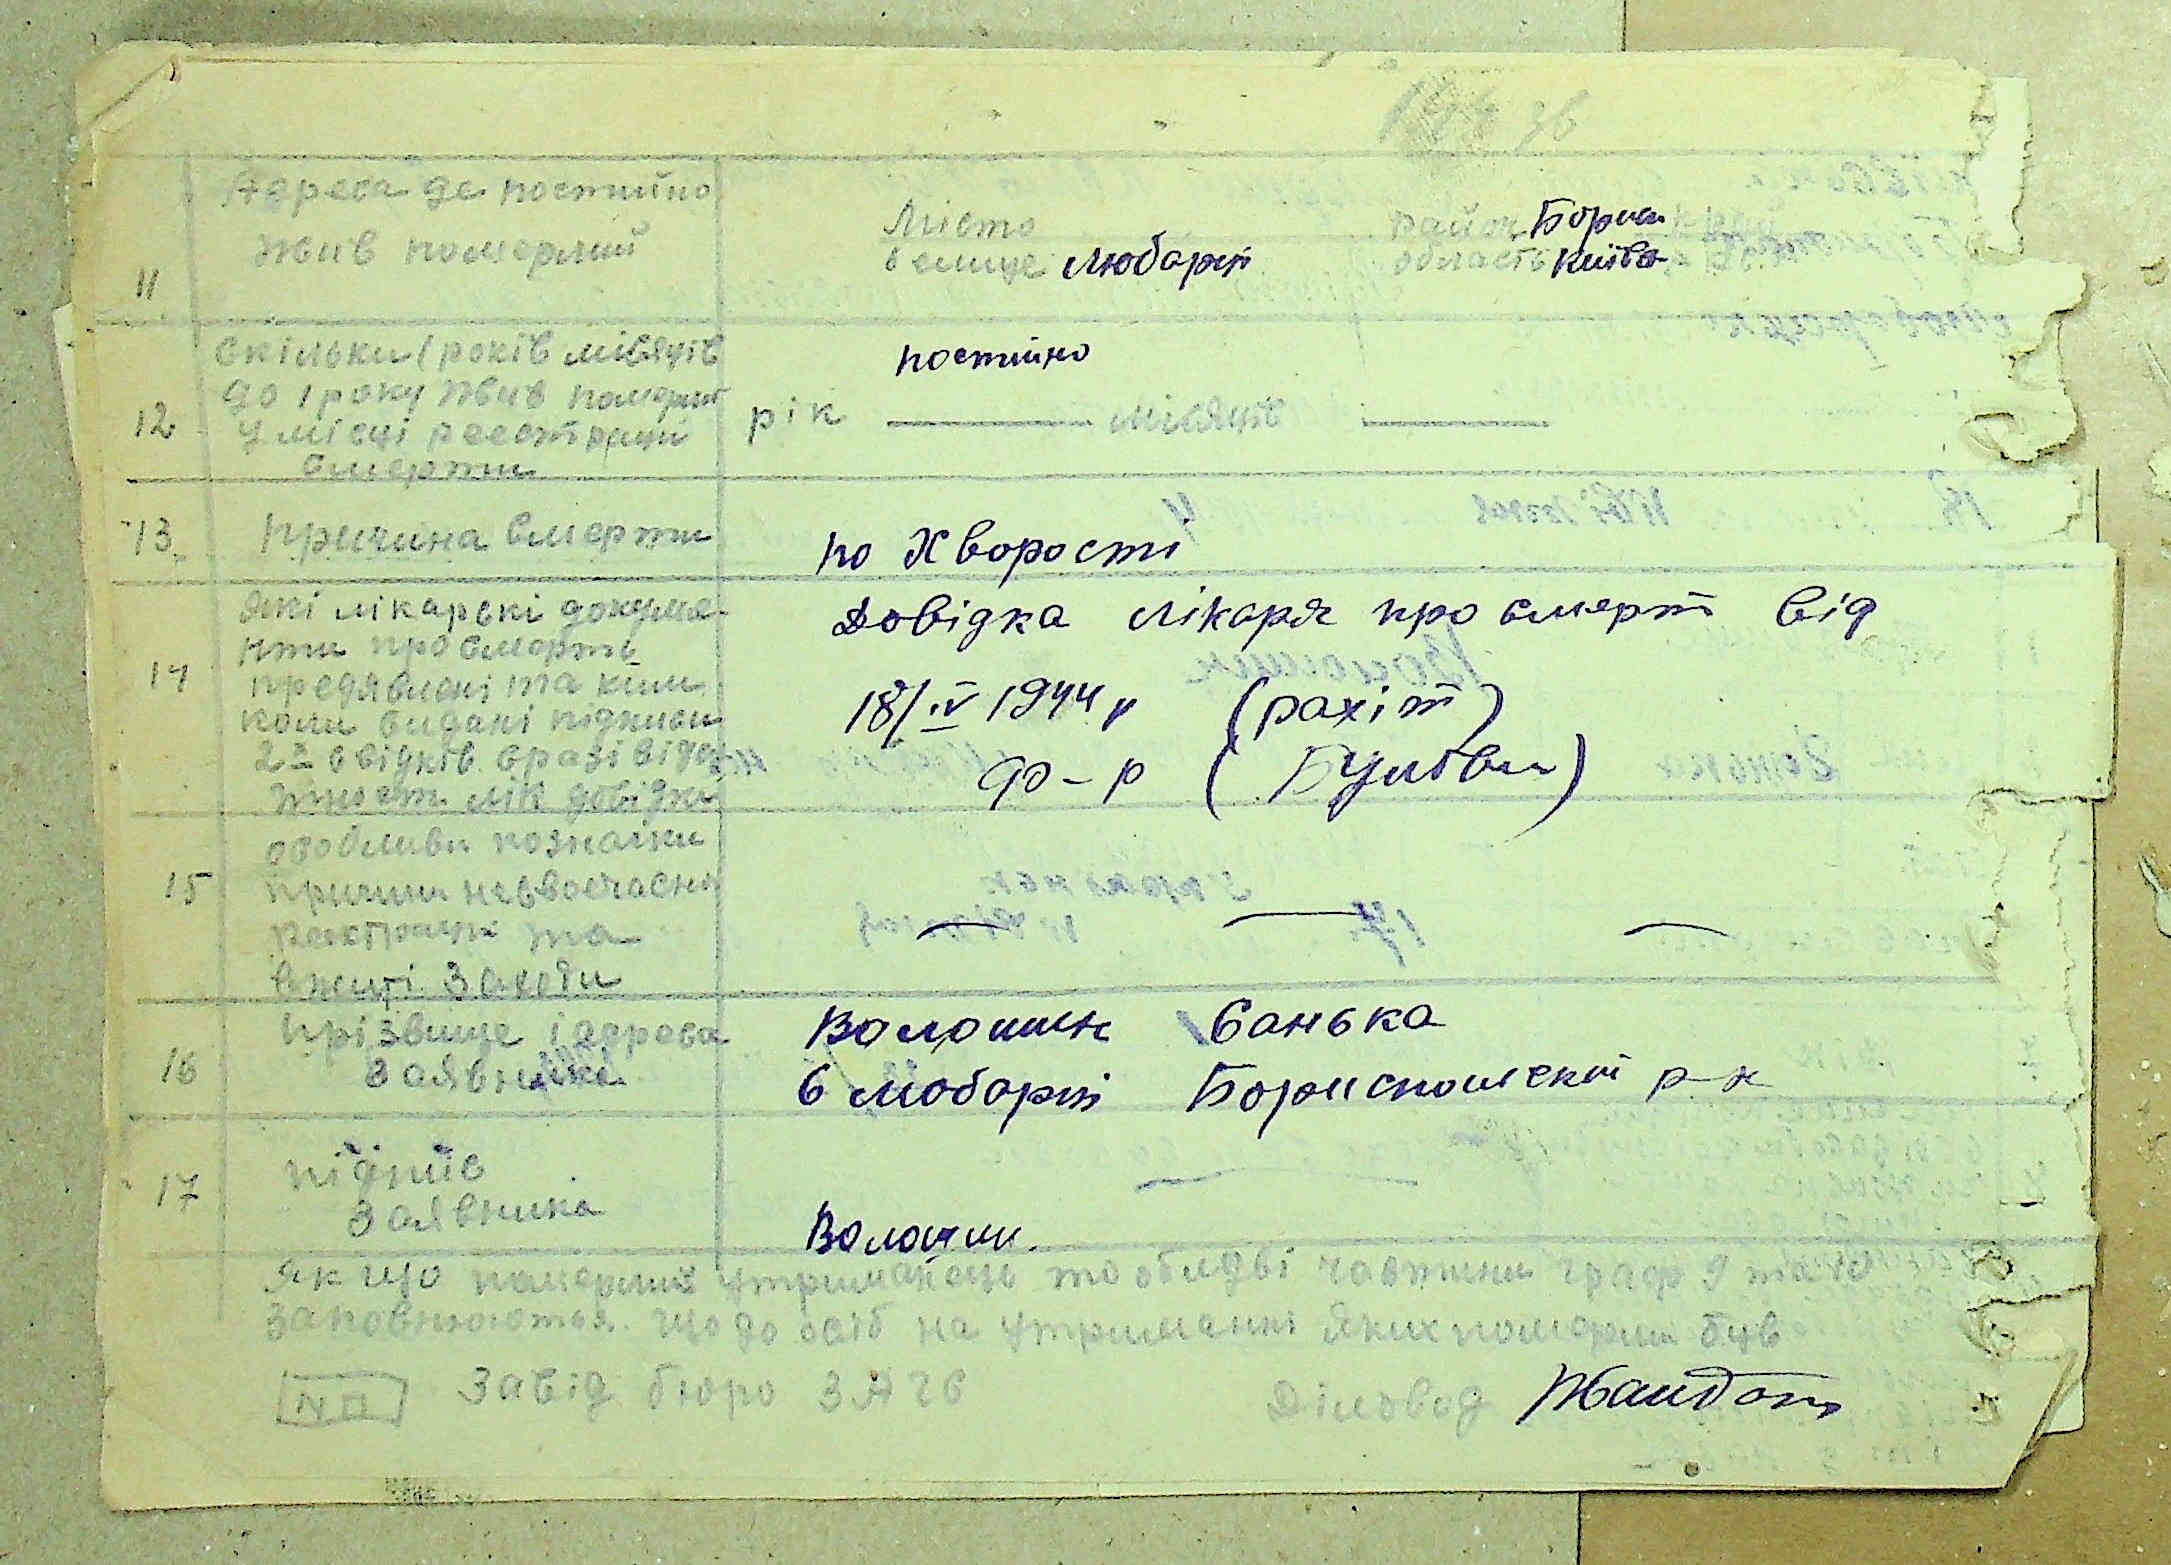 11 Адреса де постійно
жив померлий
Місто
селище Любарці
район Бори
область Київс
12 Скільки (років місяців
до 1 року жив померл
у місці реєстрації
смерти
постійно
рік місяців
13 Причина смерти
по Хворості
14 Які лікарські докуме-
нти про смерть
предявлені та ким
коли видані підписи
2х свідків в разі відсу
тности лік довідки
Довідка лікаря про смерт від
18/IV 1944 р (рахіт)
др-р
15 особливи познаки
причини невчасної
реєстрації та
вжиті заходи
16 Прізвище і адреса
заявника
Волошин Санька
с Любарці Бориспольский р-н
17 підпис
заявника
Волошин.
Якщо померлий утриманець то обидві частини граф 9 та 10
заповнюються щодо осіб на утриманні яких померли був
МП Завід бюро ЗАГС Діловод